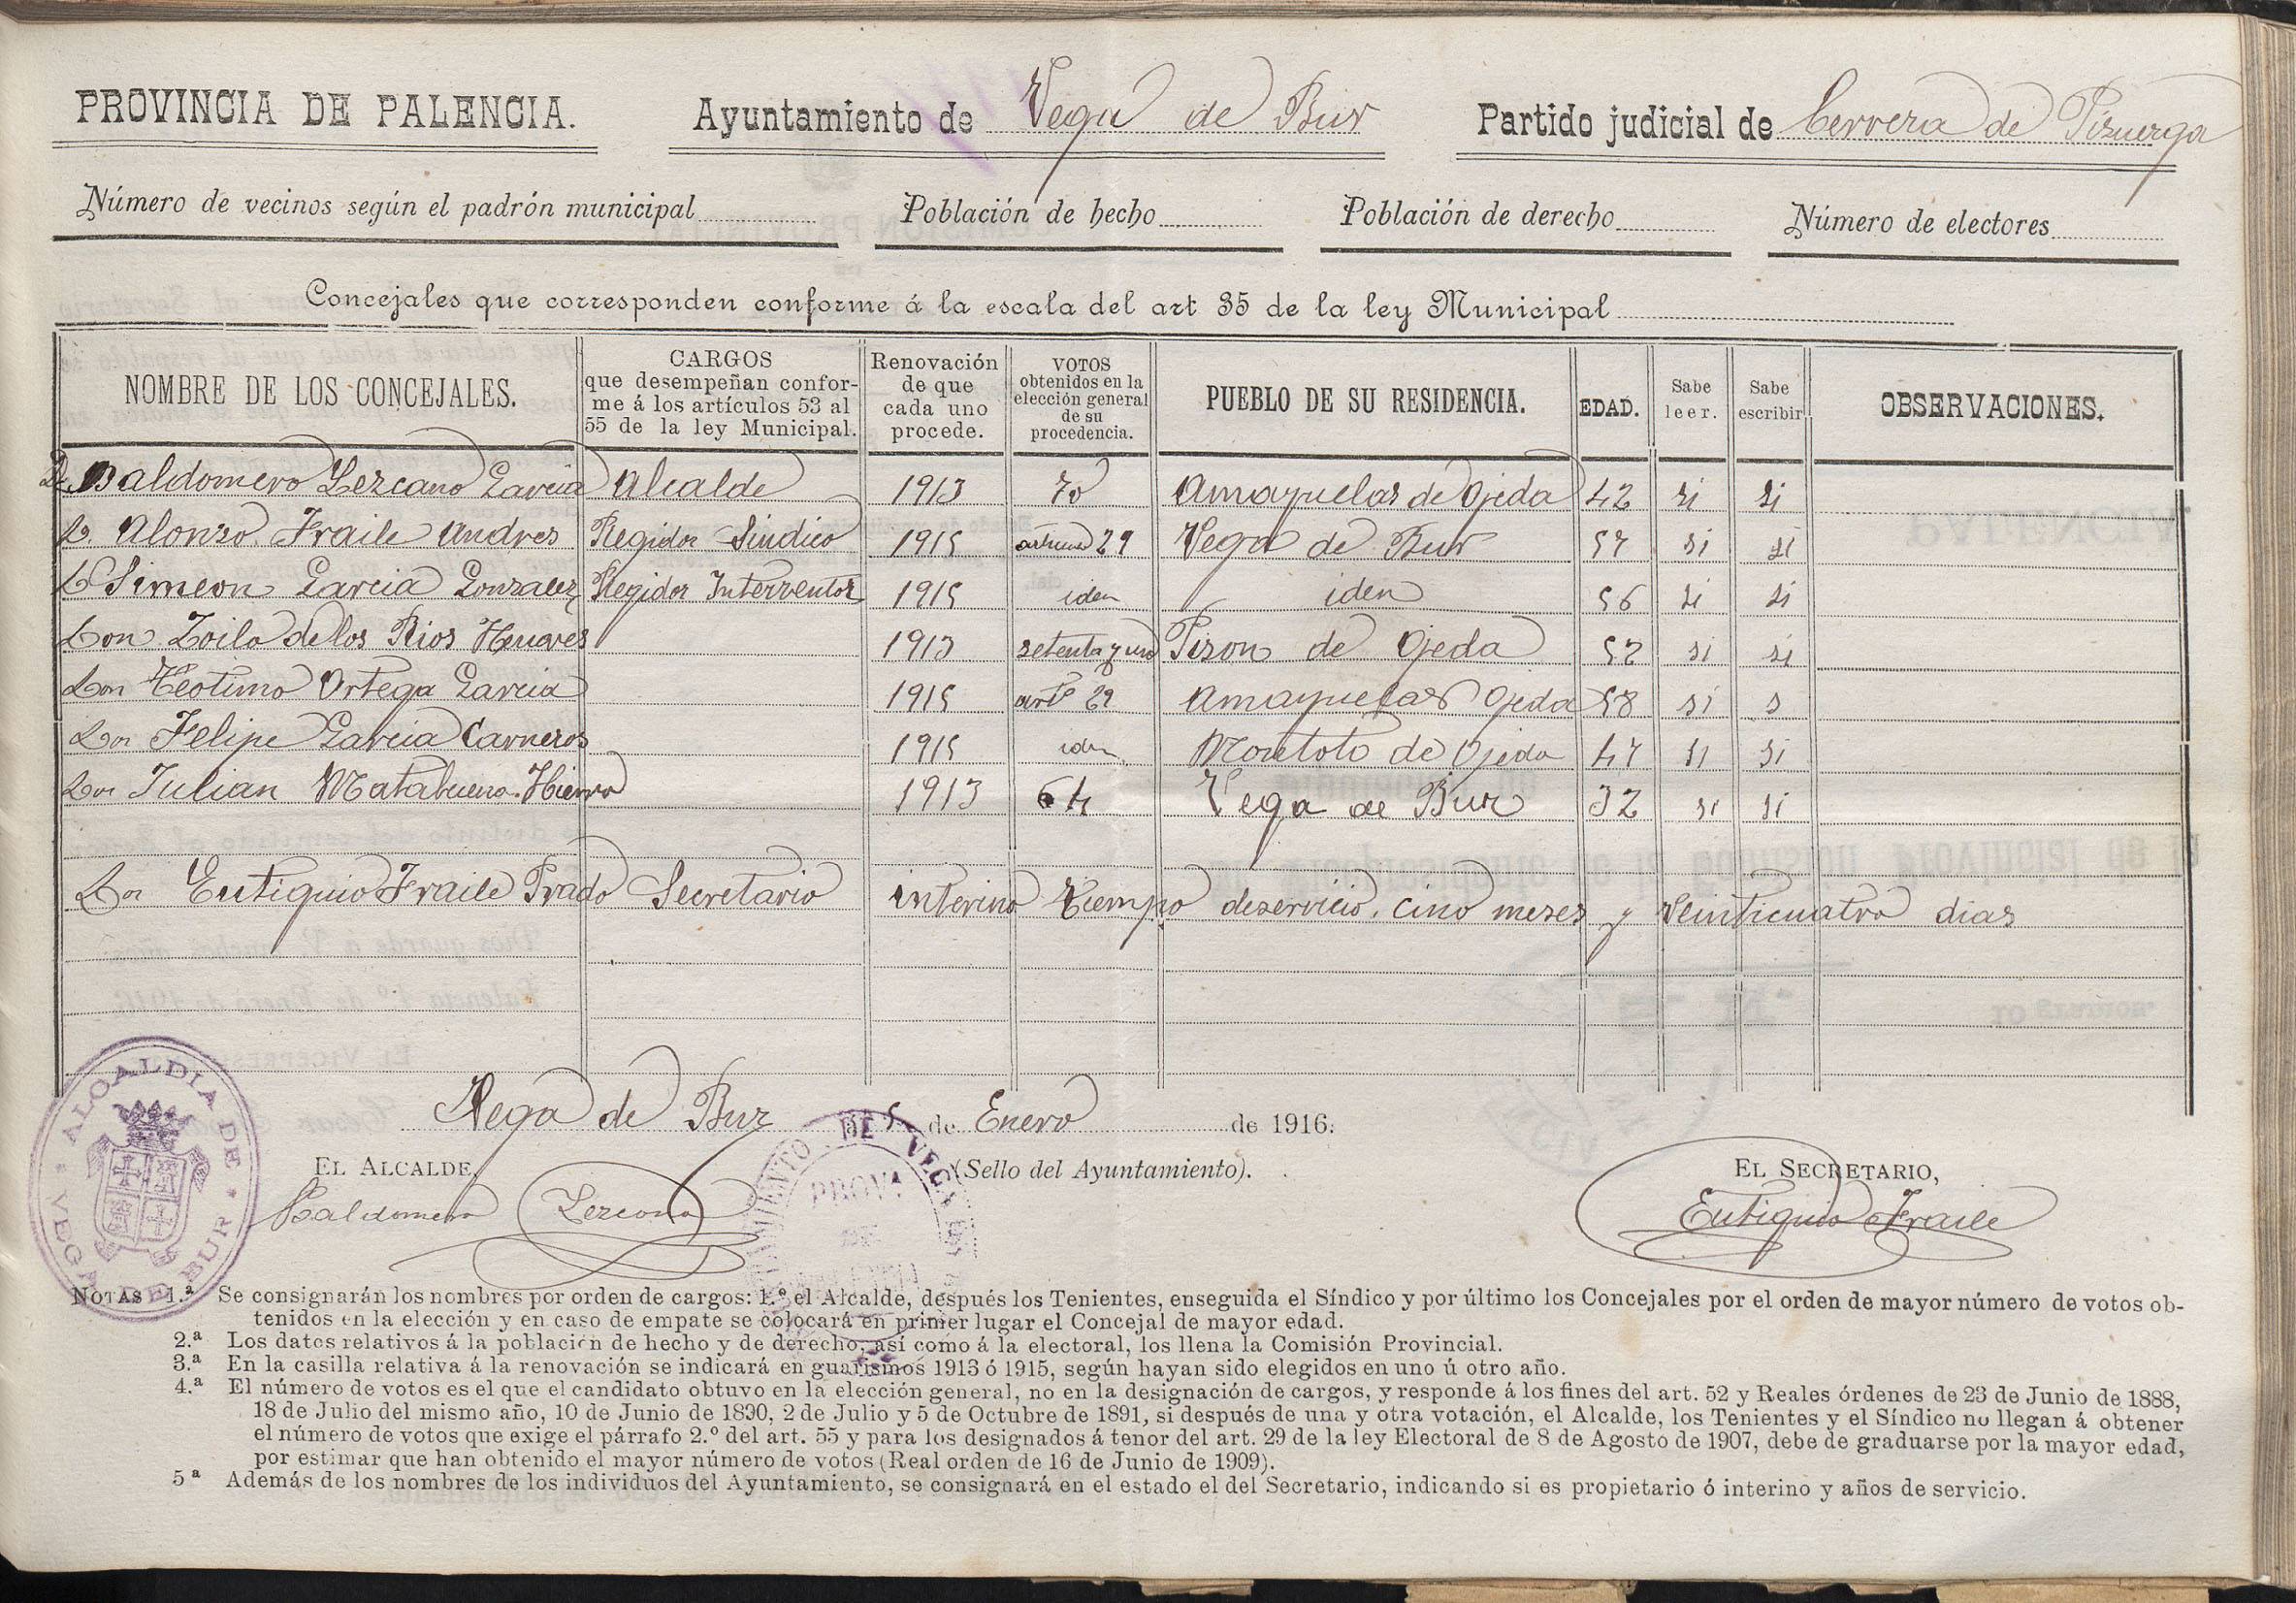 PROVINCIA DE PALENCIA. Ayuntamiento de Vega de Bur Partido judicial de Cervera de Pisuerga
Número de vecinos según el padrón municipal Población de hecho Población de derecho Número de electores
Concejales que corresponden conforme á la escala del art 35 de la ley Municipal
NOMBRE DE LOS CONCEJALES.
CARGOS
que desempeñan confor-
me á los artículos 53 al
55 de la ley Municipal.
Renovación
de que
cada uno
procede.
VOTOS
obtenidos en la
elección general
de su
procedencia.
PUEBLO DE SU RESIDENCIA.
EDAD.
Sabe
leer.
Sabe
escribir
OBSERVACIONES.
D. Baldomero Lezcano Garcia Alcalde 1913 70 Amayuelas de Ojeda 42 si si
D. Alonso Fraile Andres Regidor Sindico 1915 29 Vega de Bur 57 si si
D. Simeon Garcia Gonzalez Regidor Interventor 1915 iden iden 56 si si
Don Zoilo de los Rios Henares 1913 setenta y uno Pison de Ojeda 52 si si
Don Teotimo Ortega Garcia 1915 artº 29 Amayuelas Ojeda 58 si s
Don Felipe Garcia Carneros 1915 iden Montoto de Ojeda 47 si si
Don Julian Matabuena Hierro 1913 64 Vega de Bur 32 si si
Don Eutiquio Fraile Prado Secretario interino tiempo de servicio. cinco meses y veinticuatro dias
Vega de Bur á 5 de Enero de 1916.
EL ALCALDE, (Sello del Ayuntamiento). EL SECRETARIO,
Baldomero Lezcano Eutiquio Fraile
ALCALDIA DE VEGA DE BUR
AYUNTAMIENTO DE VEGA
PROVª
DE
NOTAS 1.ª Se consignarán los nombres por orden de cargos: 1.º el Alcalde, después los Tenientes, enseguida el Síndico y por último los Concejales por el orden de mayor número de votos ob-
tenidos en la elección y en caso de empate se colocará en primer lugar el Concejal de mayor edad.
2.ª Los datos relativos á la población de hecho y de derecho, así como á la electoral, los llena la Comisión Provincial.
3.ª En la casilla relativa á la renovación se indicará en guarismos 1913 ó 1915, según hayan sido elegidos en uno ú otro año.
4.ª El número de votos es el que el candidato obtuvo en la elección general, no en la designación de cargos, y responde á los fines del art. 52 y Reales órdenes de 23 de Junio de 1888,
18 de Julio del mismo año, 10 de Junio de 1890, 2 de Julio y 5 de Octubre de 1891, si después de una y otra votación, el Alcalde, los Tenientes y el Síndico no llegan á obtener
el número de votos que exige el párrafo 2.º del art. 55 y para los designados á tenor del art. 29 de la ley Electoral de 8 de Agosto de 1907, debe de graduarse por la mayor edad,
por estimar que han obtenido el mayor número de votos (Real orden de 16 de Junio de 1909).
5ª Además de los nombres de los individuos del Ayuntamiento, se consignará en el estado el del Secretario, indicando si es propietario ó interino y años de servicio.